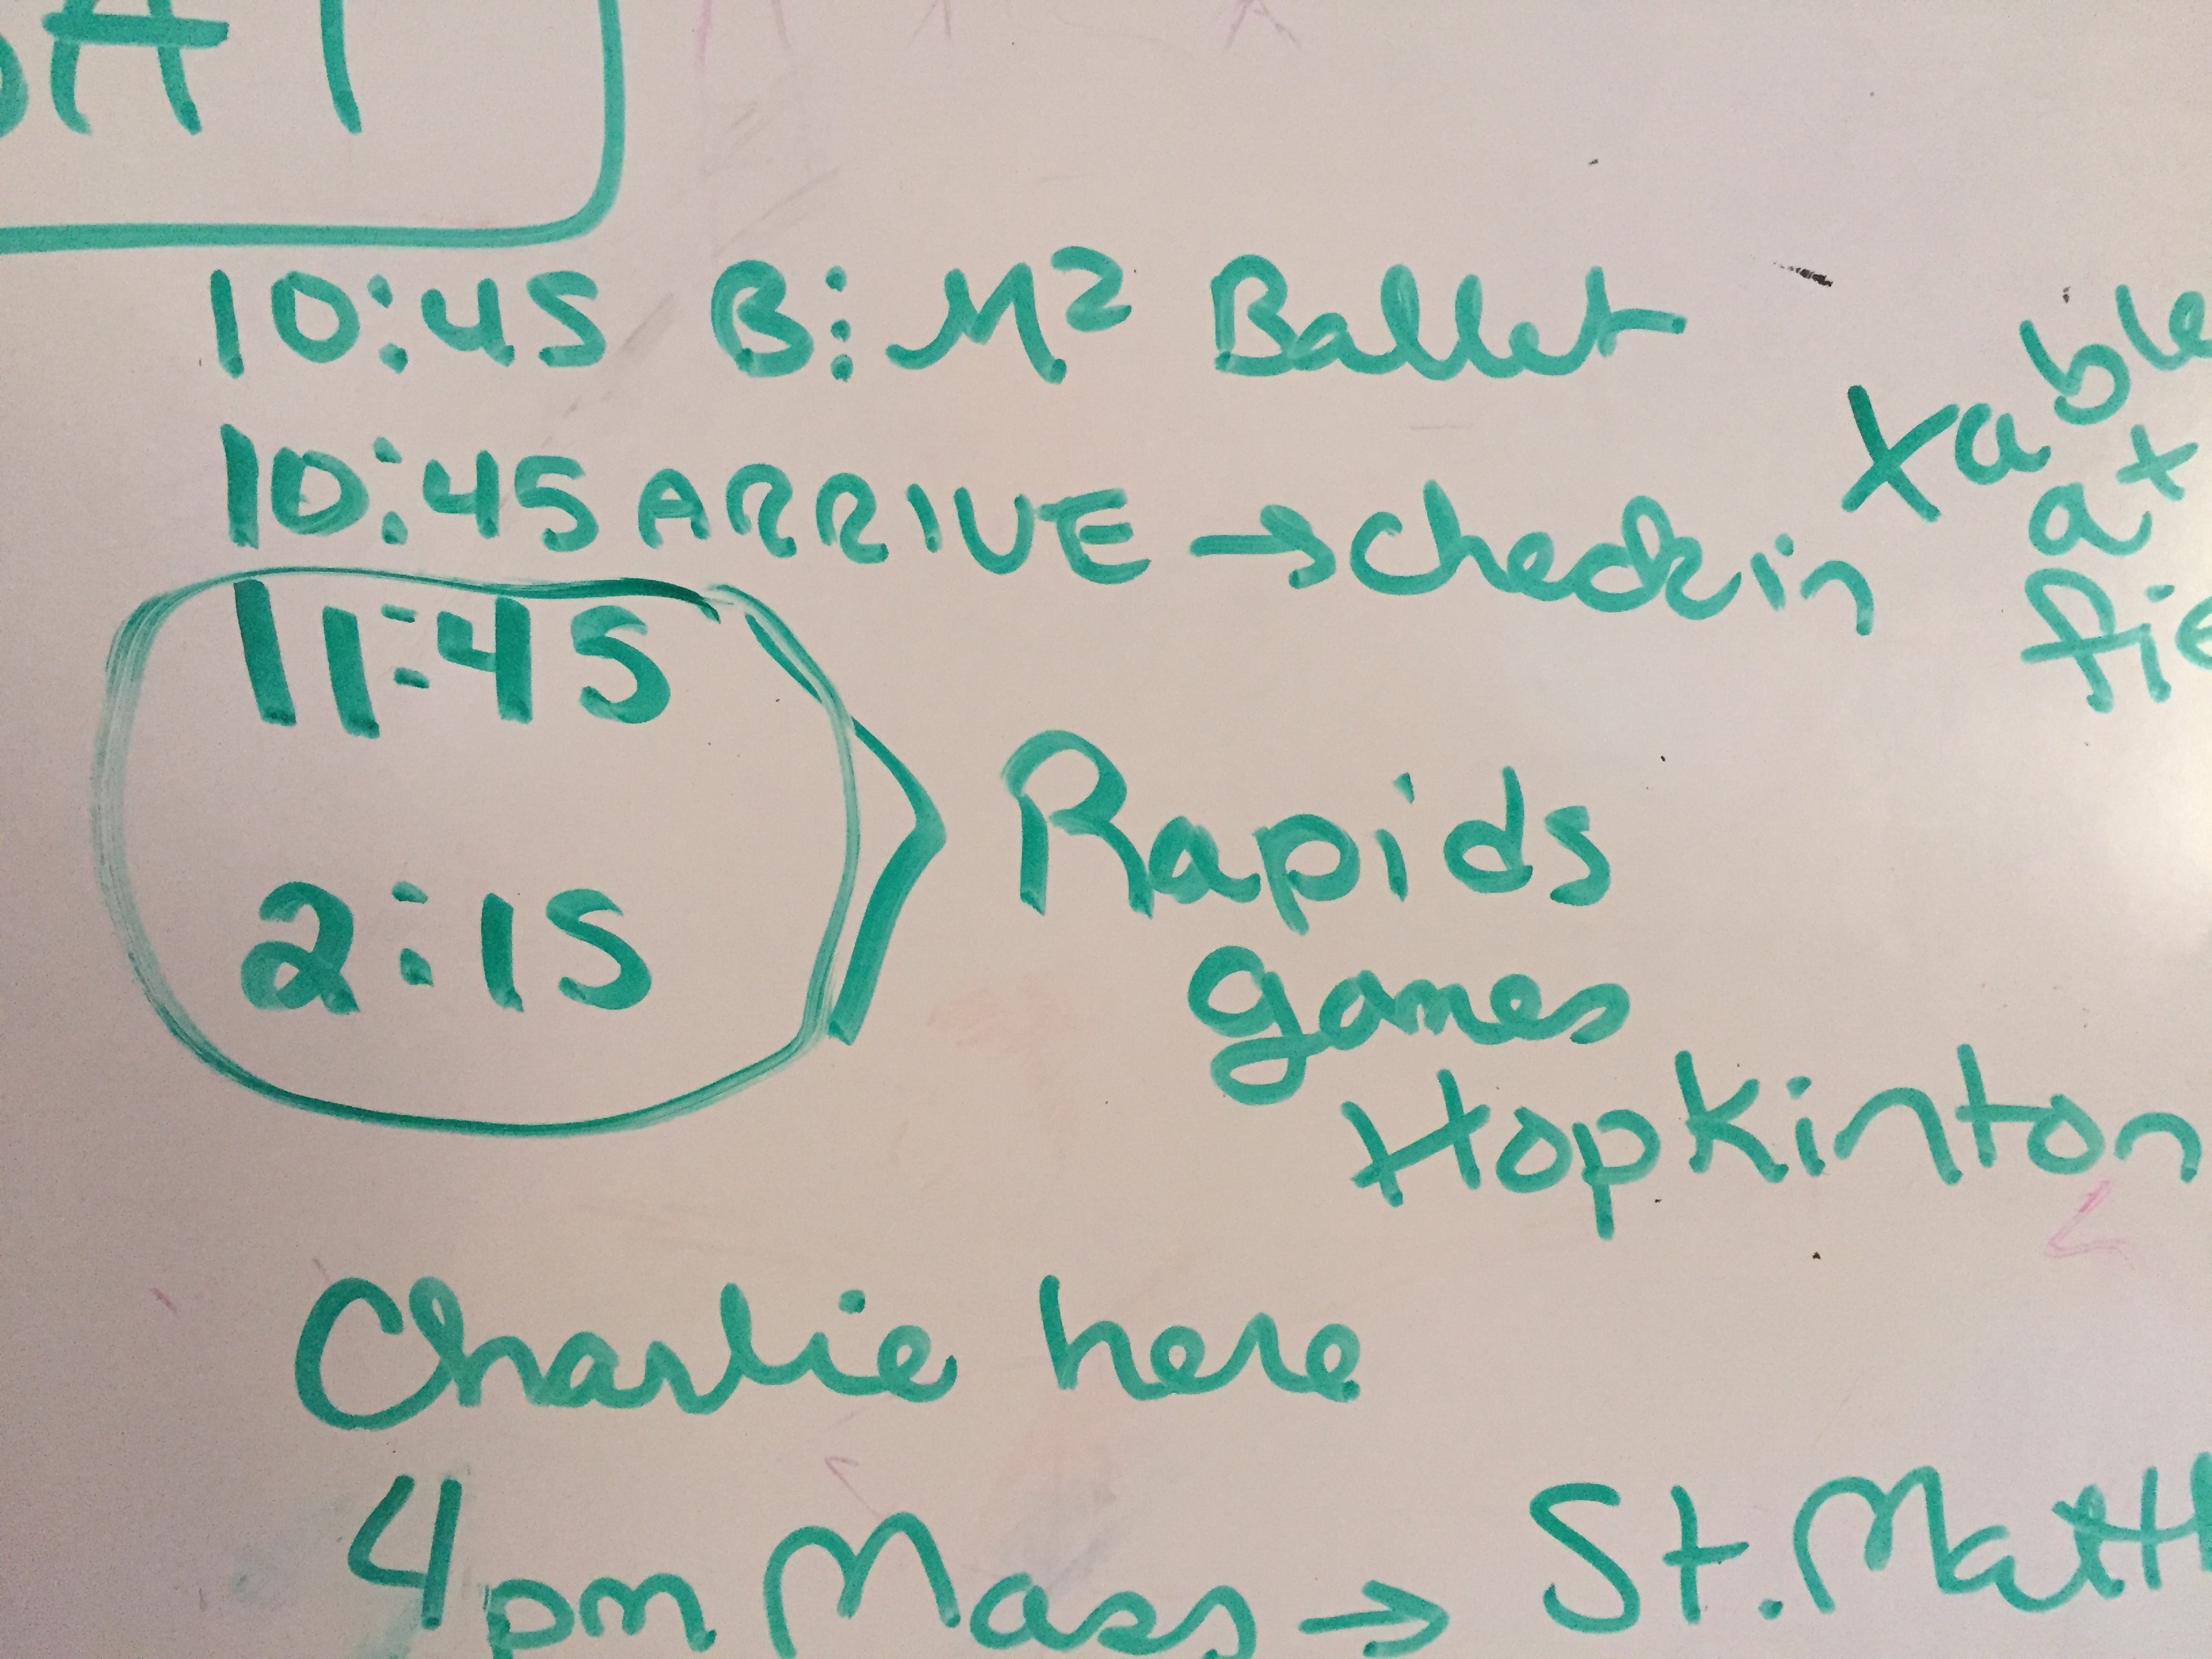 SAT
10:45 B: M² Ballet
10:45 ARRIVE → check in table
at
11:45
Rapids
2:15
games
Hopkinton
Charlie here
4pm Mass → St. Matth